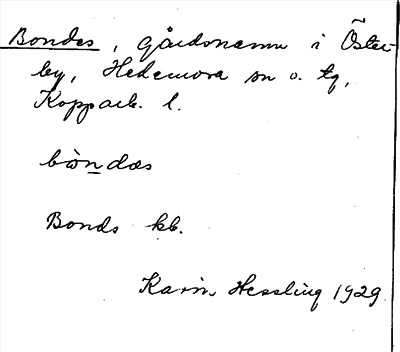 Bondes, gårdsnamn i Öster-
by, Hedemora sn o. tg,
Kopparb. l.
bòndas
Bonds kb.
Karin Hessling 1929